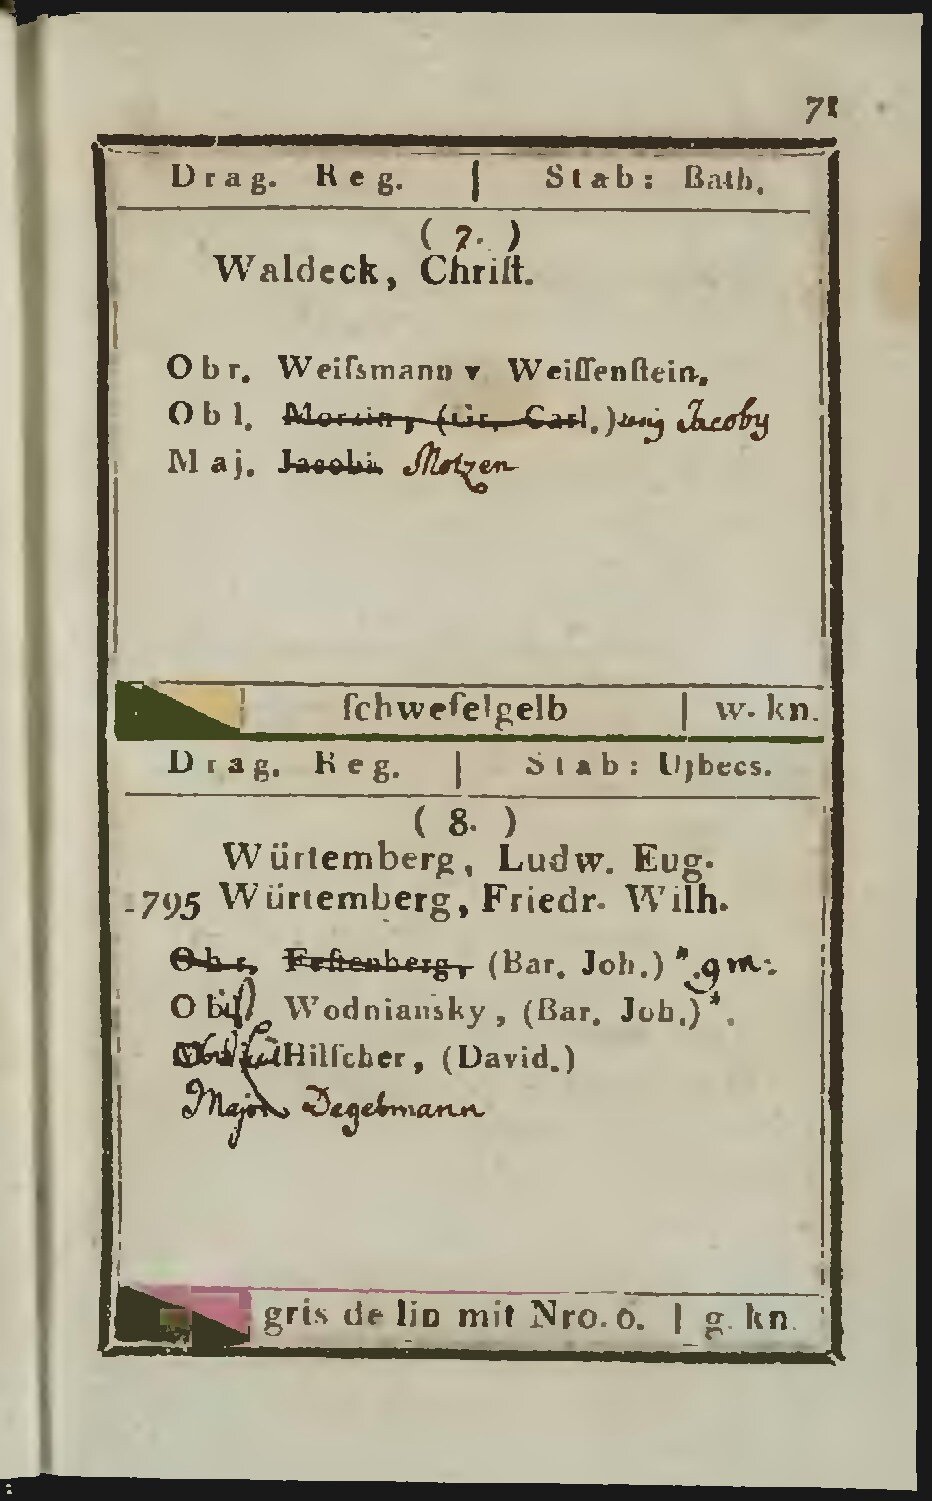 71
Drag. Reg. | Stab: Bath.
( 7. )
Waldeck, Chriſt.
Obr. Weiſsmann v Weiſſenſtein.
Obl. Morzin, (Gr. Carl.) Jacoby
Maj. Jacobi. Motzen
ſchwefelgelb | w. kn.
Drag. Reg. | Stab: Ujbecs.
( 8. )
Würtemberg, Ludw. Eug.
1795 Würtemberg, Friedr. Wilh.
Obr. Feſtenberg, (Bar. Joh.) *. gm:
Obiſt Wodniansky, (Bar. Joh.) *.
Hilſcher, (David.)
Major Degelmann
gris de lin mit Nro. o. | g. kn.